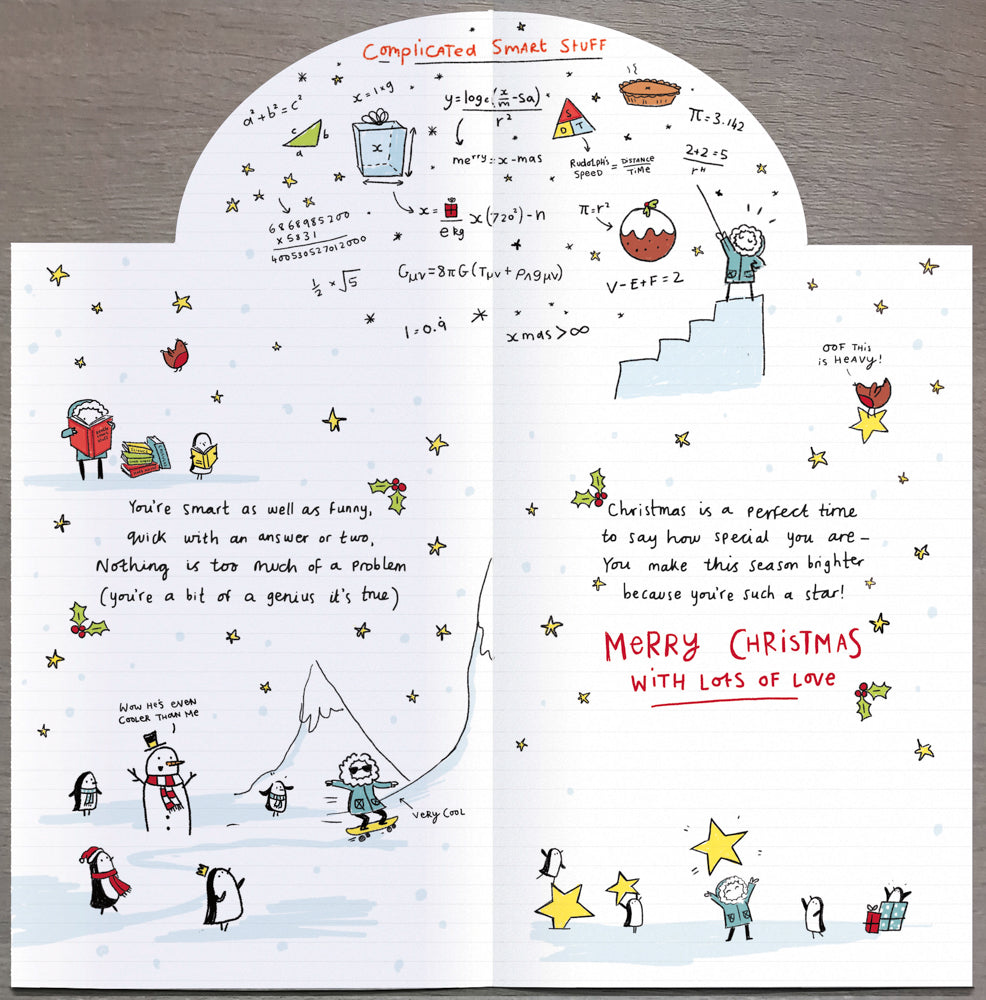 COMPLICATED SMART STUFF
a²+b²=c²
c
b
a
x=1×9
x
y=loge(x/m-sa)
r²
merry=x-mas
S
D T
RUDOLPH'S SPEED = DISTANCE/TIME
π=3.142
2+2=5
rH
6868985200
×5831
400530527012000
x= x(720²)-n
e kg
π=r²
½×√5
Gμν=8πG(Tμν+ρΛgμν)
V-E+F=2
1=0.9̇
xmas>∞
OOF THIS
IS HEAVY!
You're smart as well as funny,
quick with an answer or two,
Nothing is too much of a problem
(you're a bit of a genius it's true)
Christmas is a perfect time
to say how special you are–
You make this season brighter
because you're such a star!
MERRY CHRISTMAS
WITH LOTS OF LOVE
WOW HE'S EVEN
COOLER THAN ME
VERY COOL